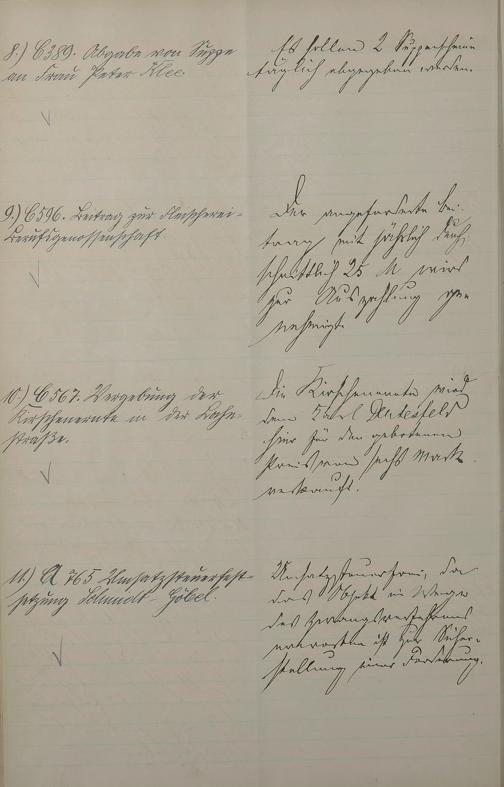 8.) C389. Abgabe von Suppe
an Frau Peter Klee.
Es sollen 2 Suppenscheine
täglich abgegeben werden.
9.) C596. Beitrag zur Fleischerei-
Berufsgenossenschaft.
Der angeforderte Bei-
trag mit jährlich durch-
schnittlich 25 M wird
zur Auszahlung ge-
nehmigt.
10.) C567. Vergebung der
Kirschenernte in der Lahn-
straße.
Die Kirschenernte wird
dem
hier für den gebotenen
Preis von sechs Mark
verkauft.
11.) A 765 Umsatzsteuerfest-
setzung Schmidt-Göbel.
Umsatzsteuerfrei, da
das Objekt im Wege
des Zwangsverfahrens
erworben ist zur Sicher-
stellung einer Forderung.